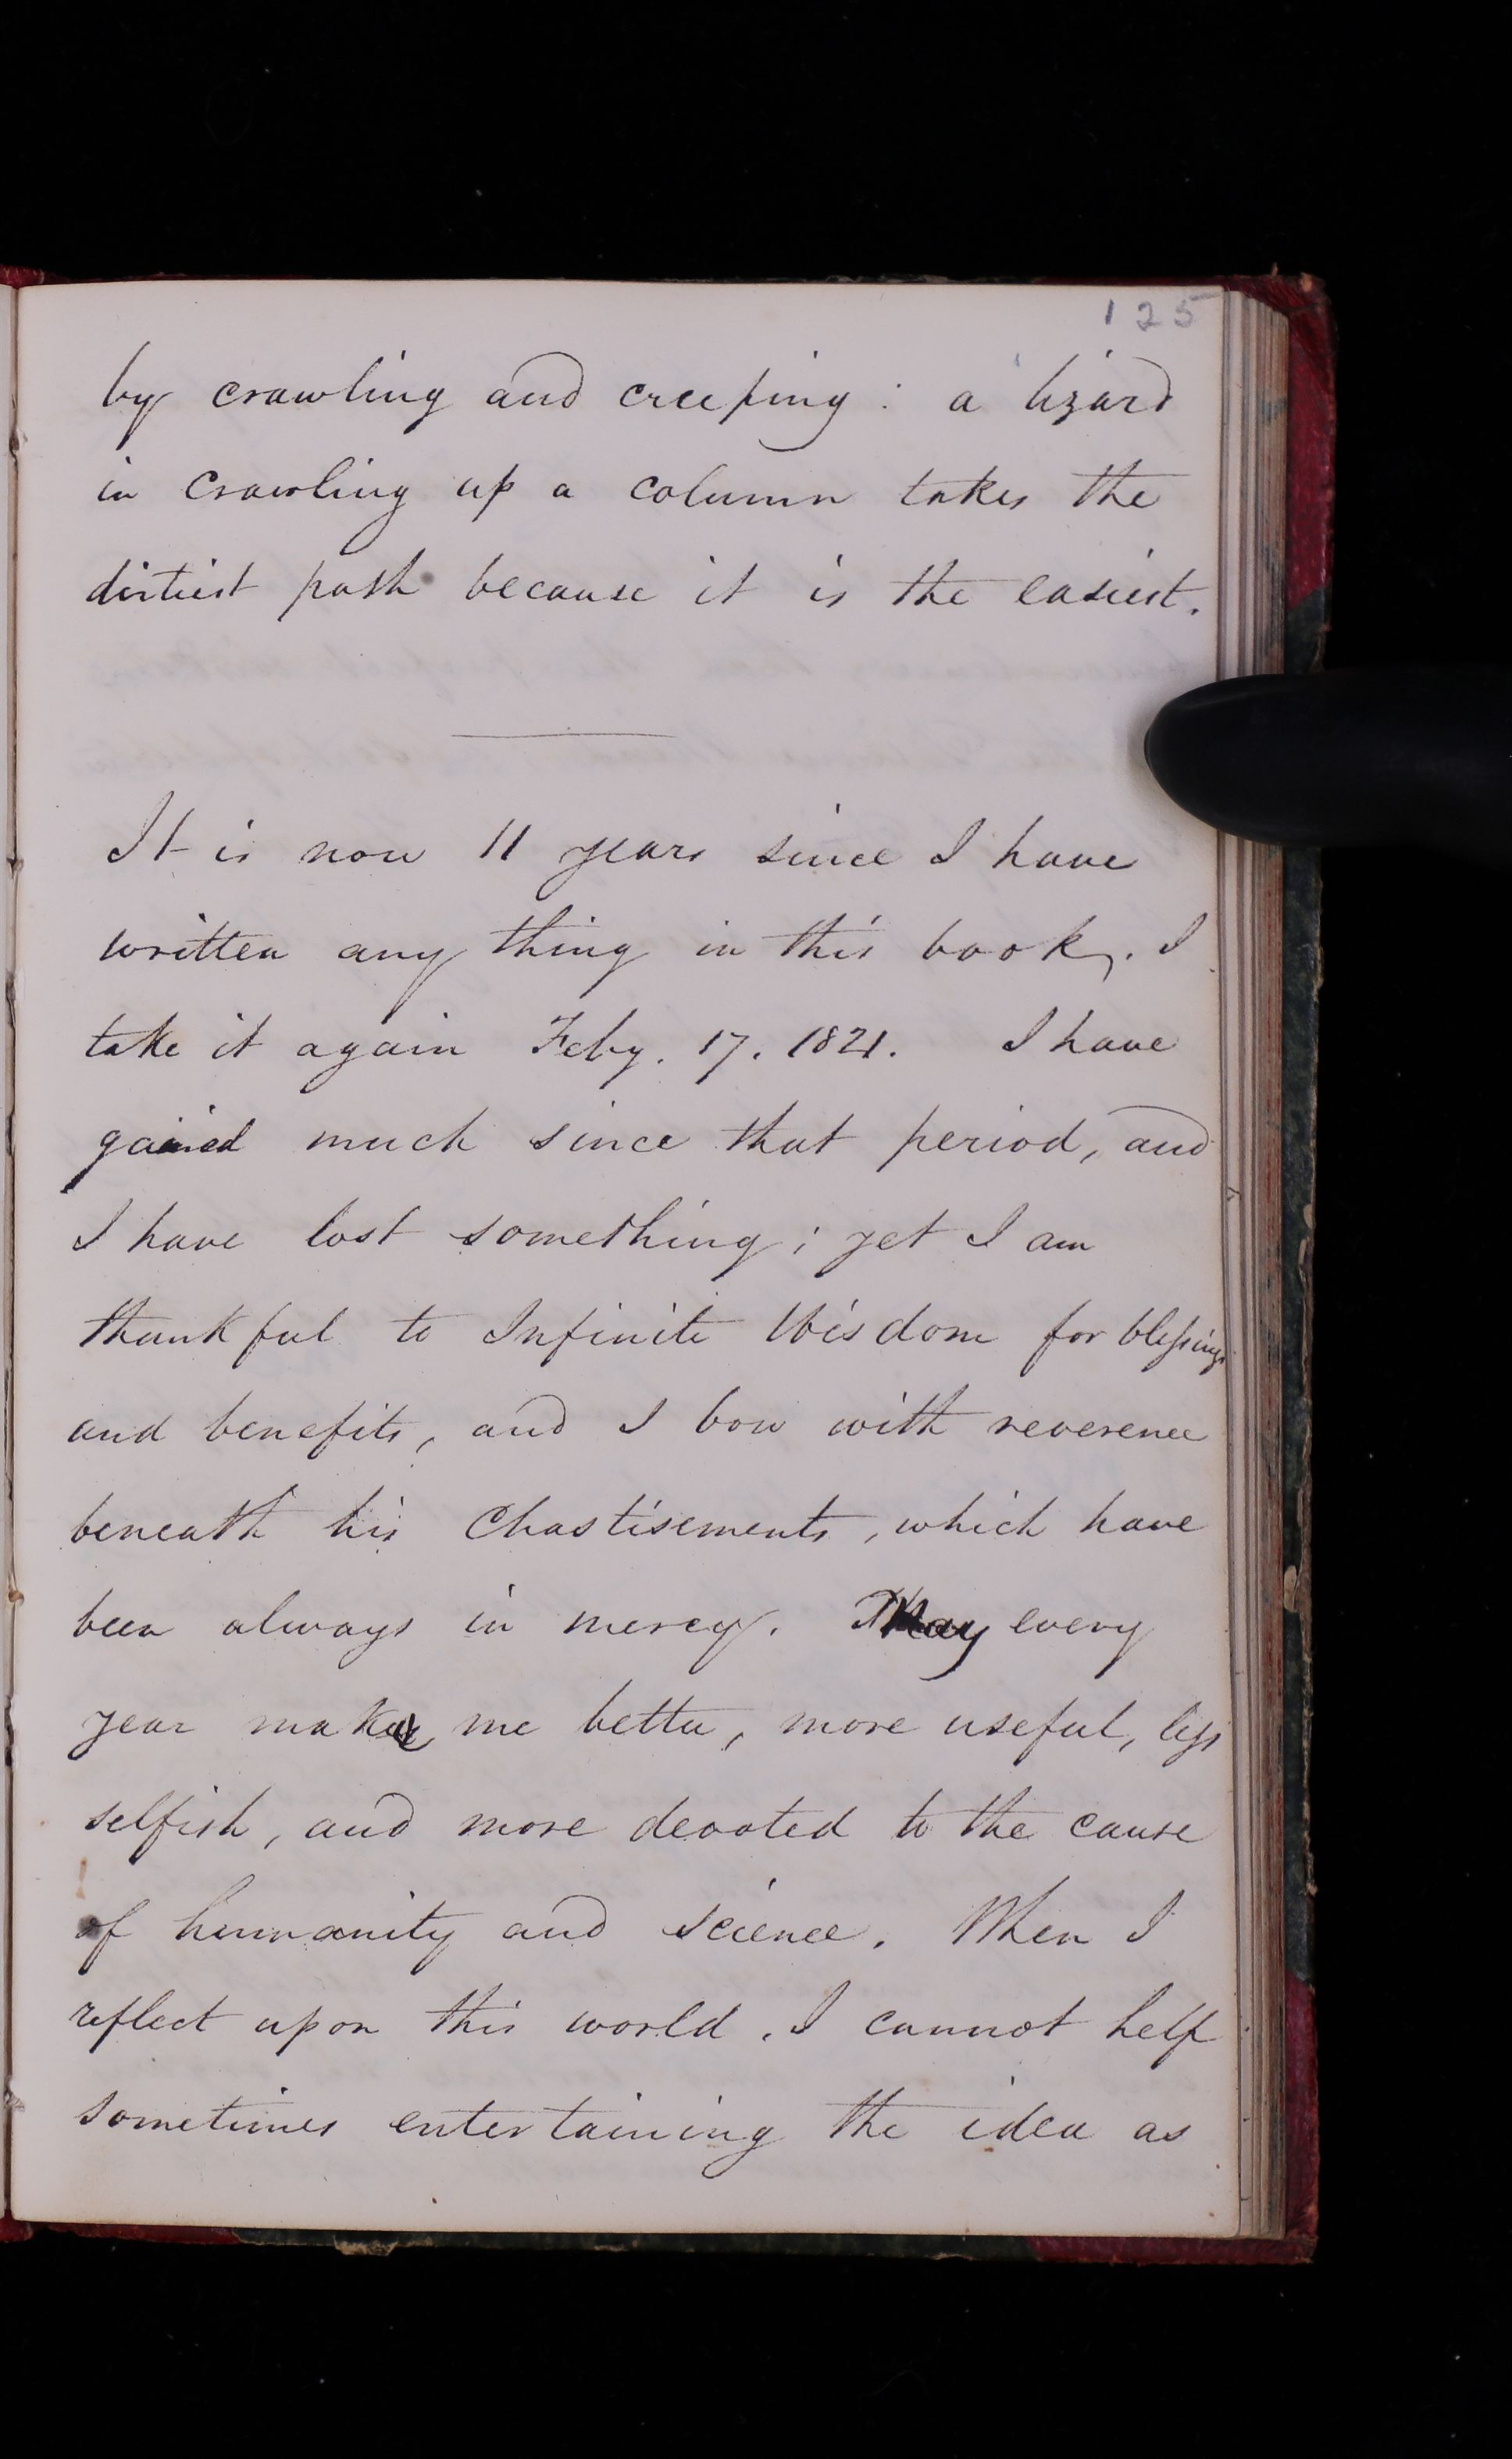 125
by crawling and creeping: a lizard
in crawling up a column takes the
dirtiest path because it is the easiest.
It is now 11 years since I have
written any thing in this book. I
take it again Feby. 17. 1821. I have
gained much since that period, and
I have lost something; yet I am
thankful to Infinite Wisdom for blessings
and benefits, and I bow with reverence
beneath his Chastisements, which have
been always in mercy. May every
year make me better, more useful, less
selfish, and more devoted to the cause
of humanity and science. When I
reflect upon this world, I cannot help
sometimes entertaining the idea as